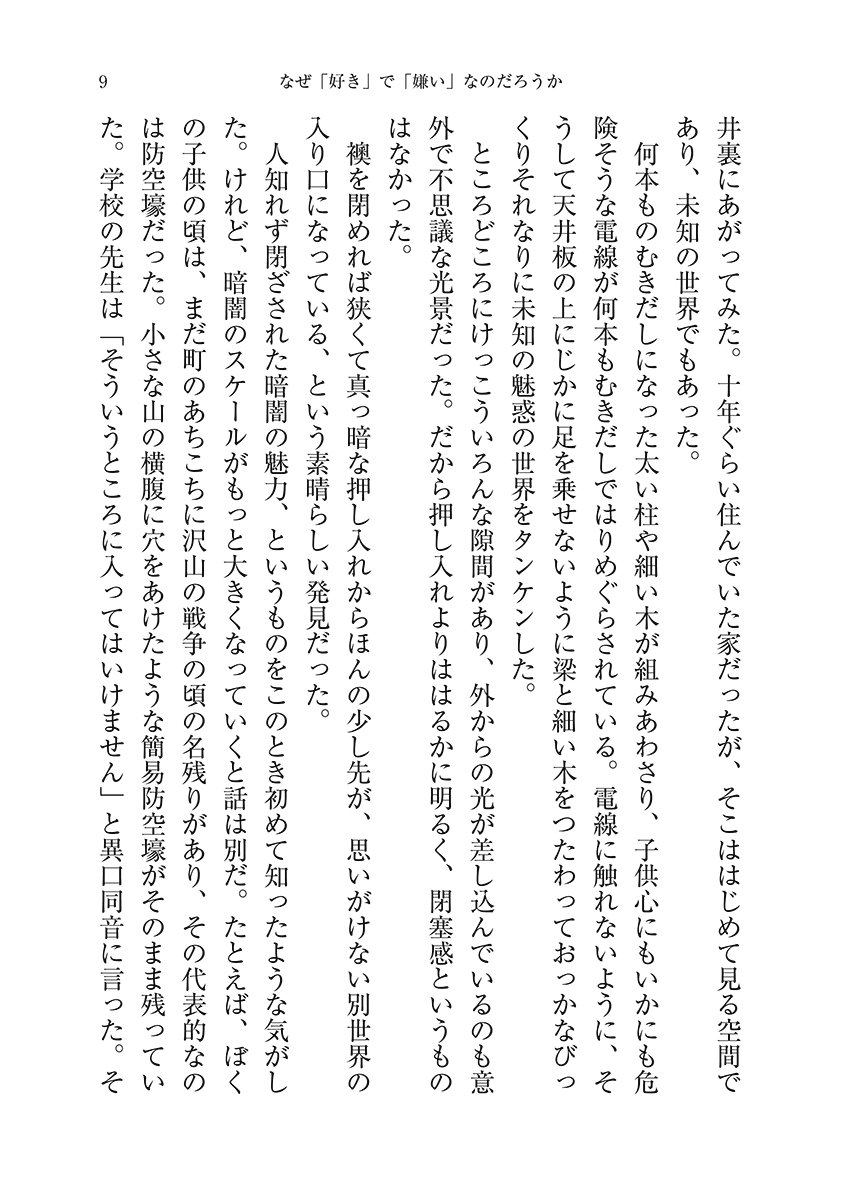 9
なぜ「好き」で「嫌い」なのだろうか
井裏にあがってみた。十年ぐらい住んでいた家だったが、そこははじめて見る空間で
あり、未知の世界でもあった。
何本ものむきだしになった太い柱や細い木が組みあわさり、子供心にもいかにも危
険そうな電線が何本もむきだしではりめぐらされている。電線に触れないように、そ
うして天井板の上にじかに足を乗せないように梁と細い木をつたわっておっかなびっ
くりそれなりに未知の魅惑の世界をタンケンした。
ところどころにけっこういろんな隙間があり、外からの光が差し込んでいるのも意
外で不思議な光景だった。だから押し入れよりははるかに明るく、閉塞感というもの
はなかった。
襖を閉めれば狭くて真っ暗な押し入れからほんの少し先が、思いがけない別世界の
入り口になっている、という素晴らしい発見だった。
人知れず閉ざされた暗闇の魅力、というものをこのとき初めて知ったような気がし
た。けれど、暗闇のスケールがもっと大きくなっていくと話は別だ。たとえば、ぼく
の子供の頃は、まだ町のあちこちに沢山の戦争の頃の名残りがあり、その代表的なの
は防空壕だった。小さな山の横腹に穴をあけたような簡易防空壕がそのまま残ってい
た。学校の先生は「そういうところに入ってはいけません」と異口同音に言った。そ